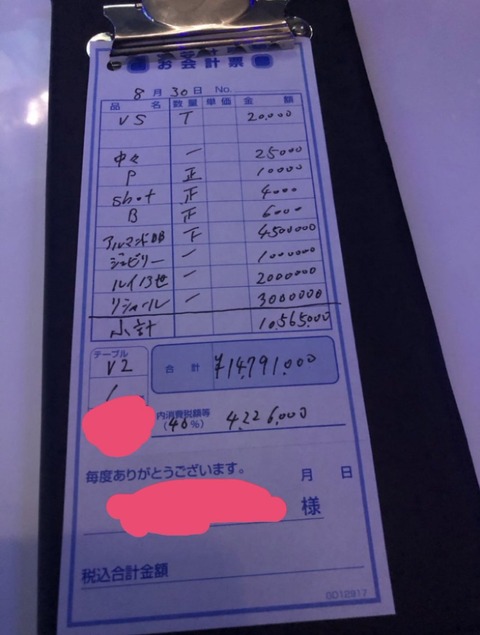 お会計票
8月30日 No.
品 名 数量 単価 金 額
VS T 20.000
中々 一 25000
P 正 10000
shot 正 4000
B 正 6000
アルマンドBB 下 4500000
ジュビリー 一 1000000
ルイ13世 一 2000000
リシャール 一 3000000
小計 10,565,000
テーブル
V2
合 計 ¥14,791,000
内消費税額等
(40%) 4,226,000
毎度ありがとうございます。 月 日
様
税込合計金額